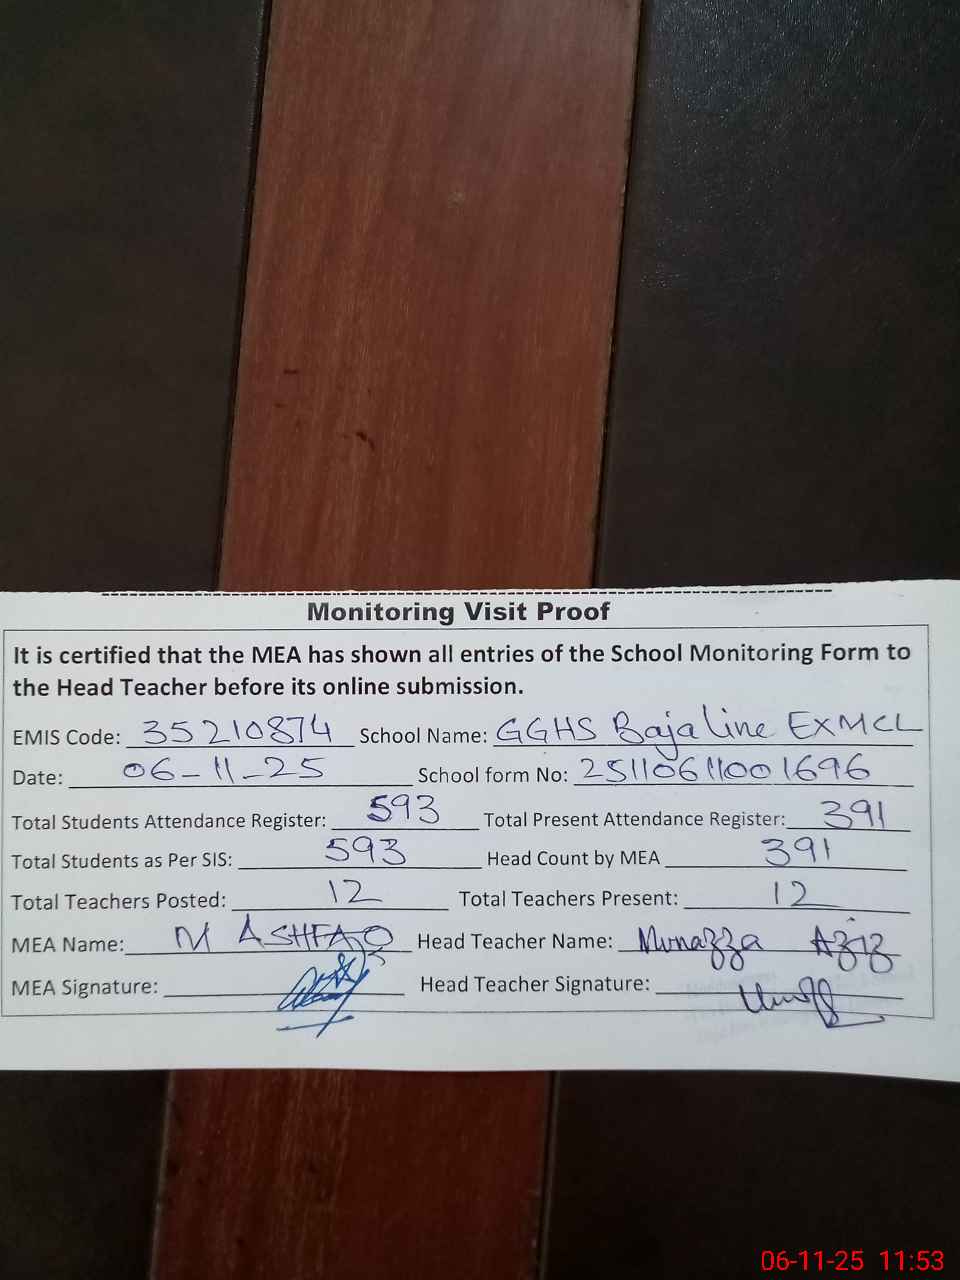 Monitoring Visit Proof
It is certified that the MEA has shown all entries of the School Monitoring Form to
the Head Teacher before its online submission.
EMIS Code: 35210874 School Name: GGHS Baja Line EXMCL
Date: 06-11-25 School form No: 25110611001696
Total Students Attendance Register: 593 Total Present Attendance Register: 391
Total Students as Per SIS: 593 Head Count by MEA 391
Total Teachers Posted: 12 Total Teachers Present: 12
MEA Name: M ASHFAQ Head Teacher Name: Munazza Aziz
MEA Signature: Head Teacher Signature:
06-11-25 11:53